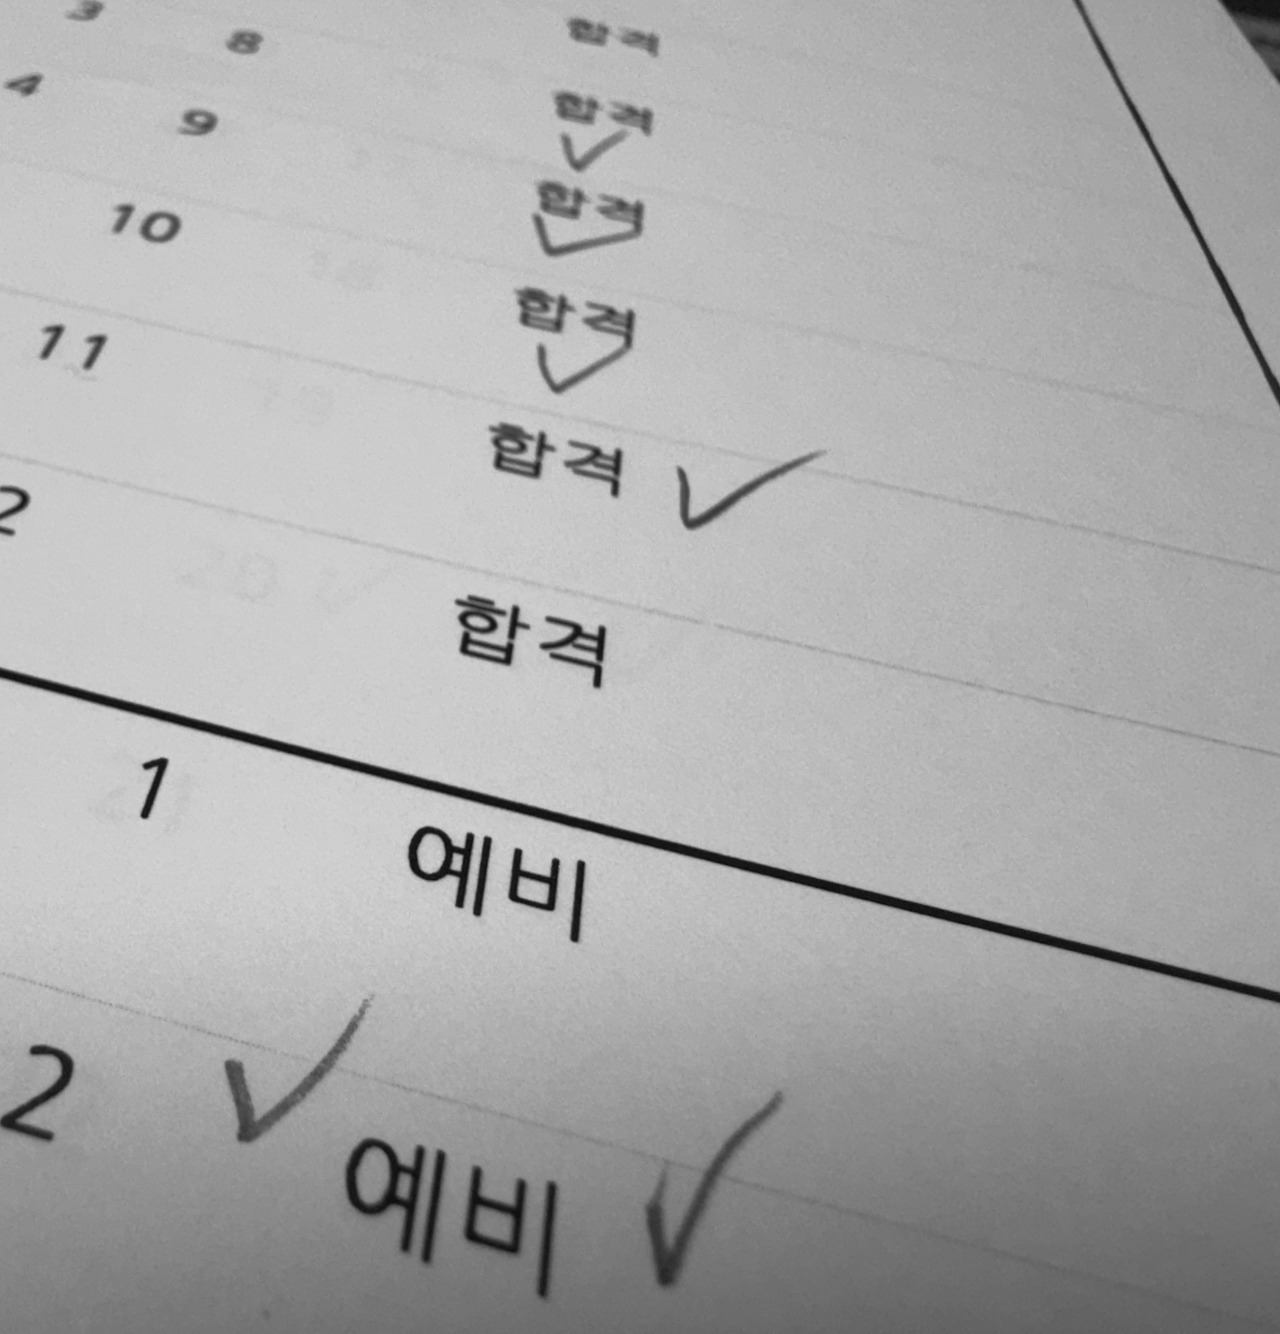 합격
3 8 합격
4 9 합격
10 합격
11 합격
2 합격
1 예비
2 예비